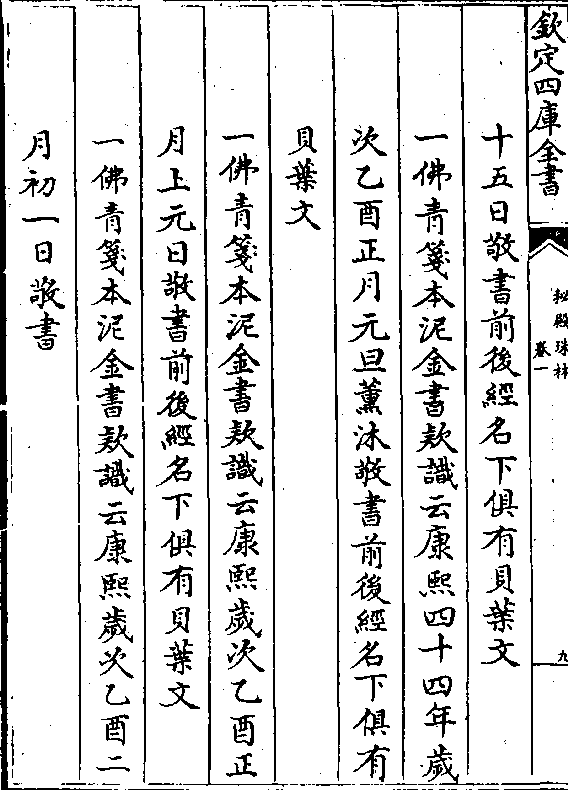 欽定四庫全書
秘殿珠林
卷一
九
十五日敬書前後經名下俱有貝葉文
一佛青箋本泥金書款識云康熙四十四年歲
次乙酉正月元旦薰沐敬書前後經名下俱有
貝葉文
一佛青箋本泥金書款識云康熙歲次乙酉正
月上元日敬書前後經名下俱有貝葉文
一佛青箋本泥金書款識云康熙歲次乙酉二
月初一日敬書